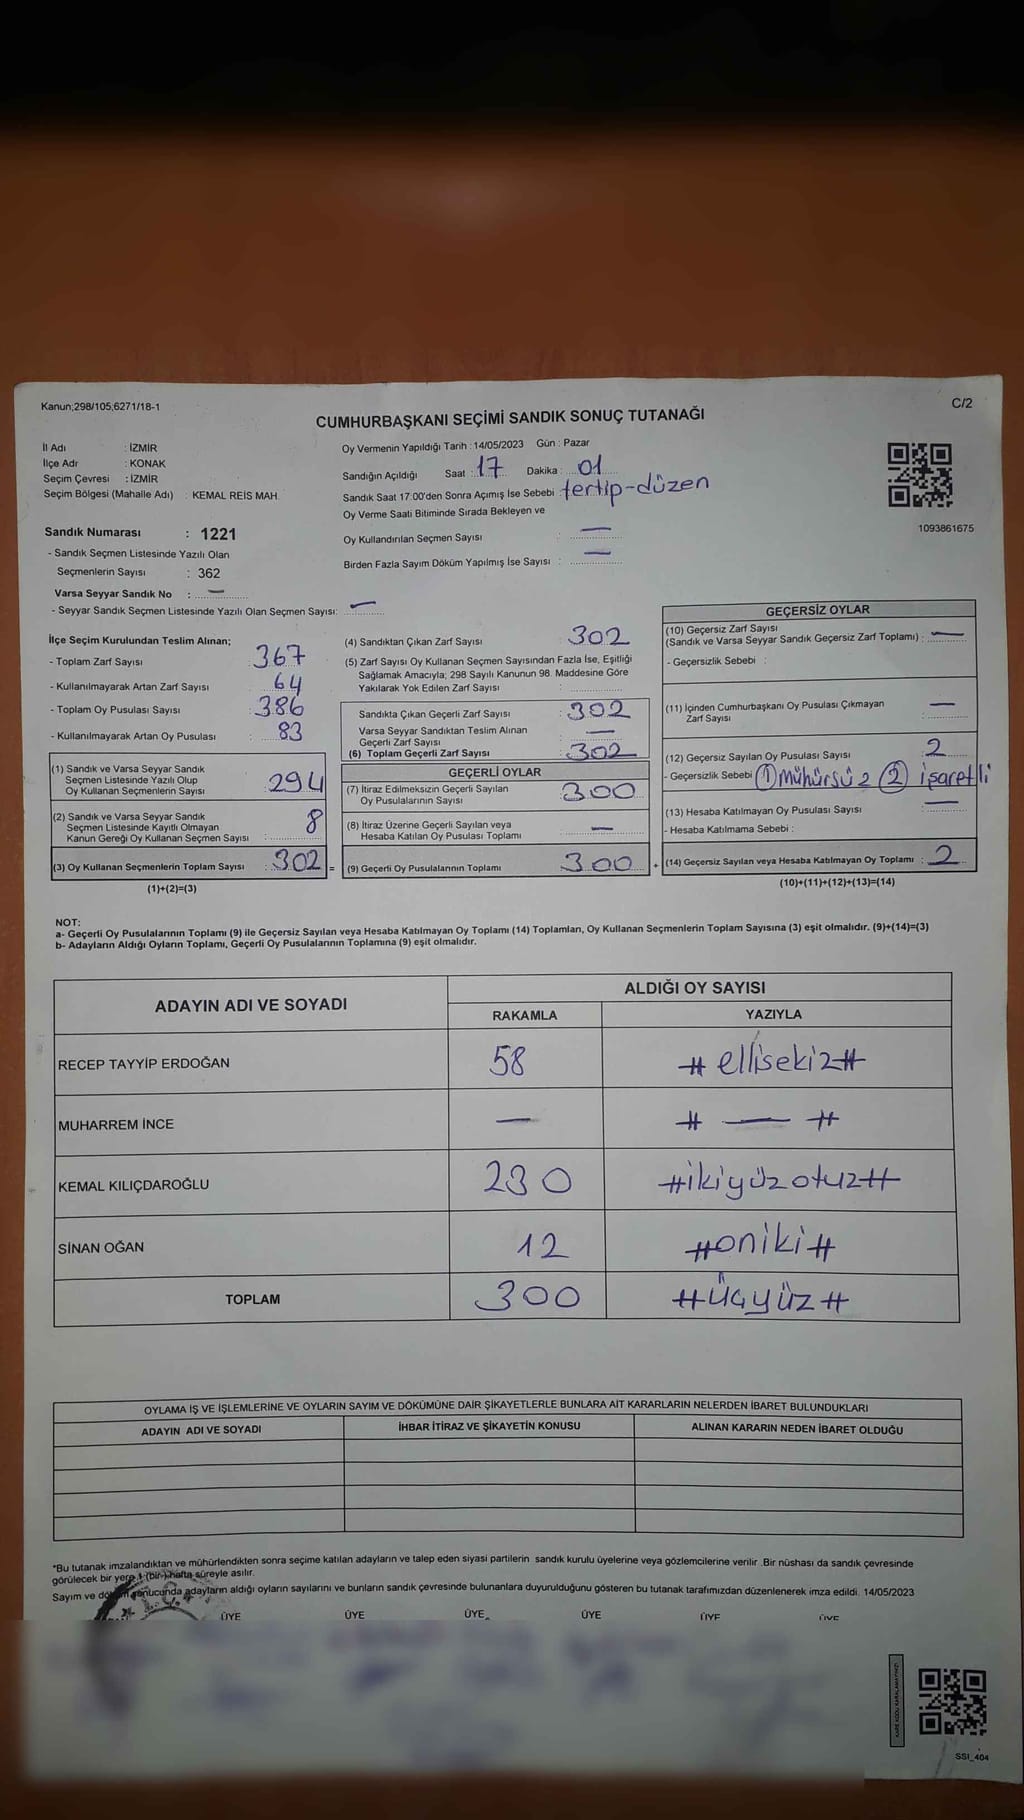 Kanun;298/105;6271/18-1
C/2
CUMHURBAŞKANI SEÇİMİ SANDIK SONUÇ TUTANAĞI
İl Adı : İZMİR
İlçe Adı : KONAK
Seçim Çevresi : İZMİR
Seçim Bölgesi (Mahalle Adı) : KEMAL REİS MAH.
Oy Vermenin Yapıldığı Tarih : 14/05/2023 Gün : Pazar
Sandığın Açıldığı Saat : 17 Dakika : 01
Sandık Saat 17:00'den Sonra Açımış İse Sebebi : tertip-düzen
Oy Verme Saati Bitiminde Sırada Bekleyen ve
Oy Kullandırılan Seçmen Sayısı : —
Birden Fazla Sayım Döküm Yapılmış İse Sayısı : —
1093861675
Sandık Numarası : 1221
- Sandık Seçmen Listesinde Yazılı Olan
Seçmenlerin Sayısı : 362
Varsa Seyyar Sandık No : —
- Seyyar Sandık Seçmen Listesinde Yazılı Olan Seçmen Sayısı: —
İlçe Seçim Kurulundan Teslim Alınan;
- Toplam Zarf Sayısı : 367
- Kullanılmayarak Artan Zarf Sayısı : 64
- Toplam Oy Pusulası Sayısı : 386
- Kullanılmayarak Artan Oy Pusulası : 83
(1) Sandık ve Varsa Seyyar Sandık
Seçmen Listesinde Yazılı Olup
Oy Kullanan Seçmenlerin Sayısı : 294
(2) Sandık ve Varsa Seyyar Sandık
Seçmen Listesinde Kayıtlı Olmayan
Kanun Gereği Oy Kullanan Seçmen Sayısı : 8
(3) Oy Kullanan Seçmenlerin Toplam Sayısı : 302 =
(1)+(2)=(3)
(4) Sandıktan Çıkan Zarf Sayısı : 302
(5) Zarf Sayısı Oy Kullanan Seçmen Sayısından Fazla İse, Eşitliği
Sağlamak Amacıyla; 298 Sayılı Kanunun 98. Maddesine Göre
Yakılarak Yok Edilen Zarf Sayısı :
Sandıkta Çıkan Geçerli Zarf Sayısı : 302
Varsa Seyyar Sandıktan Teslim Alınan
Geçerli Zarf Sayısı : —
(6) Toplam Geçerli Zarf Sayısı : 302
GEÇERLİ OYLAR
(7) İtiraz Edilmeksizin Geçerli Sayılan
Oy Pusulalarının Sayısı : 300
(8) İtiraz Üzerine Geçerli Sayılan veya
Hesaba Katılan Oy Pusulası Toplamı : —
(9) Geçerli Oy Pusulalarının Toplamı : 300 +
GEÇERSİZ OYLAR
(10) Geçersiz Zarf Sayısı
(Sandık ve Varsa Seyyar Sandık Geçersiz Zarf Toplamı) : —
- Geçersizlik Sebebi :
(11) İçinden Cumhurbaşkanı Oy Pusulası Çıkmayan
Zarf Sayısı : —
(12) Geçersiz Sayılan Oy Pusulası Sayısı : 2
- Geçersizlik Sebebi : ① mühürsüz ② işaretli
(13) Hesaba Katılmayan Oy Pusulası Sayısı : —
- Hesaba Katılmama Sebebi :
(14) Geçersiz Sayılan veya Hesaba Katılmayan Oy Toplamı : 2
(10)+(11)+(12)+(13)=(14)
NOT:
a- Geçerli Oy Pusulalarının Toplamı (9) ile Geçersiz Sayılan veya Hesaba Katılmayan Oy Toplamı (14) Toplamları, Oy Kullanan Seçmenlerin Toplam Sayısına (3) eşit olmalıdır. (9)+(14)=(3)
b- Adayların Aldığı Oyların Toplamı, Geçerli Oy Pusulalarının Toplamına (9) eşit olmalıdır.
ADAYIN ADI VE SOYADI
ALDIĞI OY SAYISI
RAKAMLA YAZIYLA
RECEP TAYYİP ERDOĞAN 58 # ellisekiz#
MUHARREM İNCE — # — #
KEMAL KILIÇDAROĞLU 230 #ikiyüzotuz#
SİNAN OĞAN 12 #oniki#
TOPLAM 300 #üçyüz#
OYLAMA İŞ VE İŞLEMLERİNE VE OYLARIN SAYIM VE DÖKÜMÜNE DAİR ŞİKAYETLERLE BUNLARA AİT KARARLARIN NELERDEN İBARET BULUNDUKLARI
ADAYIN ADI VE SOYADI İHBAR İTİRAZ VE ŞİKAYETİN KONUSU ALINAN KARARIN NEDEN İBARET OLDUĞU
*Bu tutanak imzalandıktan ve mühürlendikten sonra seçime katılan adayların ve talep eden siyasi partilerin sandık kurulu üyelerine veya gözlemcilerine verilir. Bir nüshası da sandık çevresinde
görülecek bir yere 1 (bir) hafta süreyle asılır.
Sayım ve döküm sonucunda adayların aldığı oyların sayılarını ve bunların sandık çevresinde bulunanlara duyurulduğunu gösteren bu tutanak tarafımızdan düzenlenerek imza edildi. 14/05/2023
T.C.
ÜYE ÜYE ÜYE ÜYE ÜYE ÜYE
SSI_404